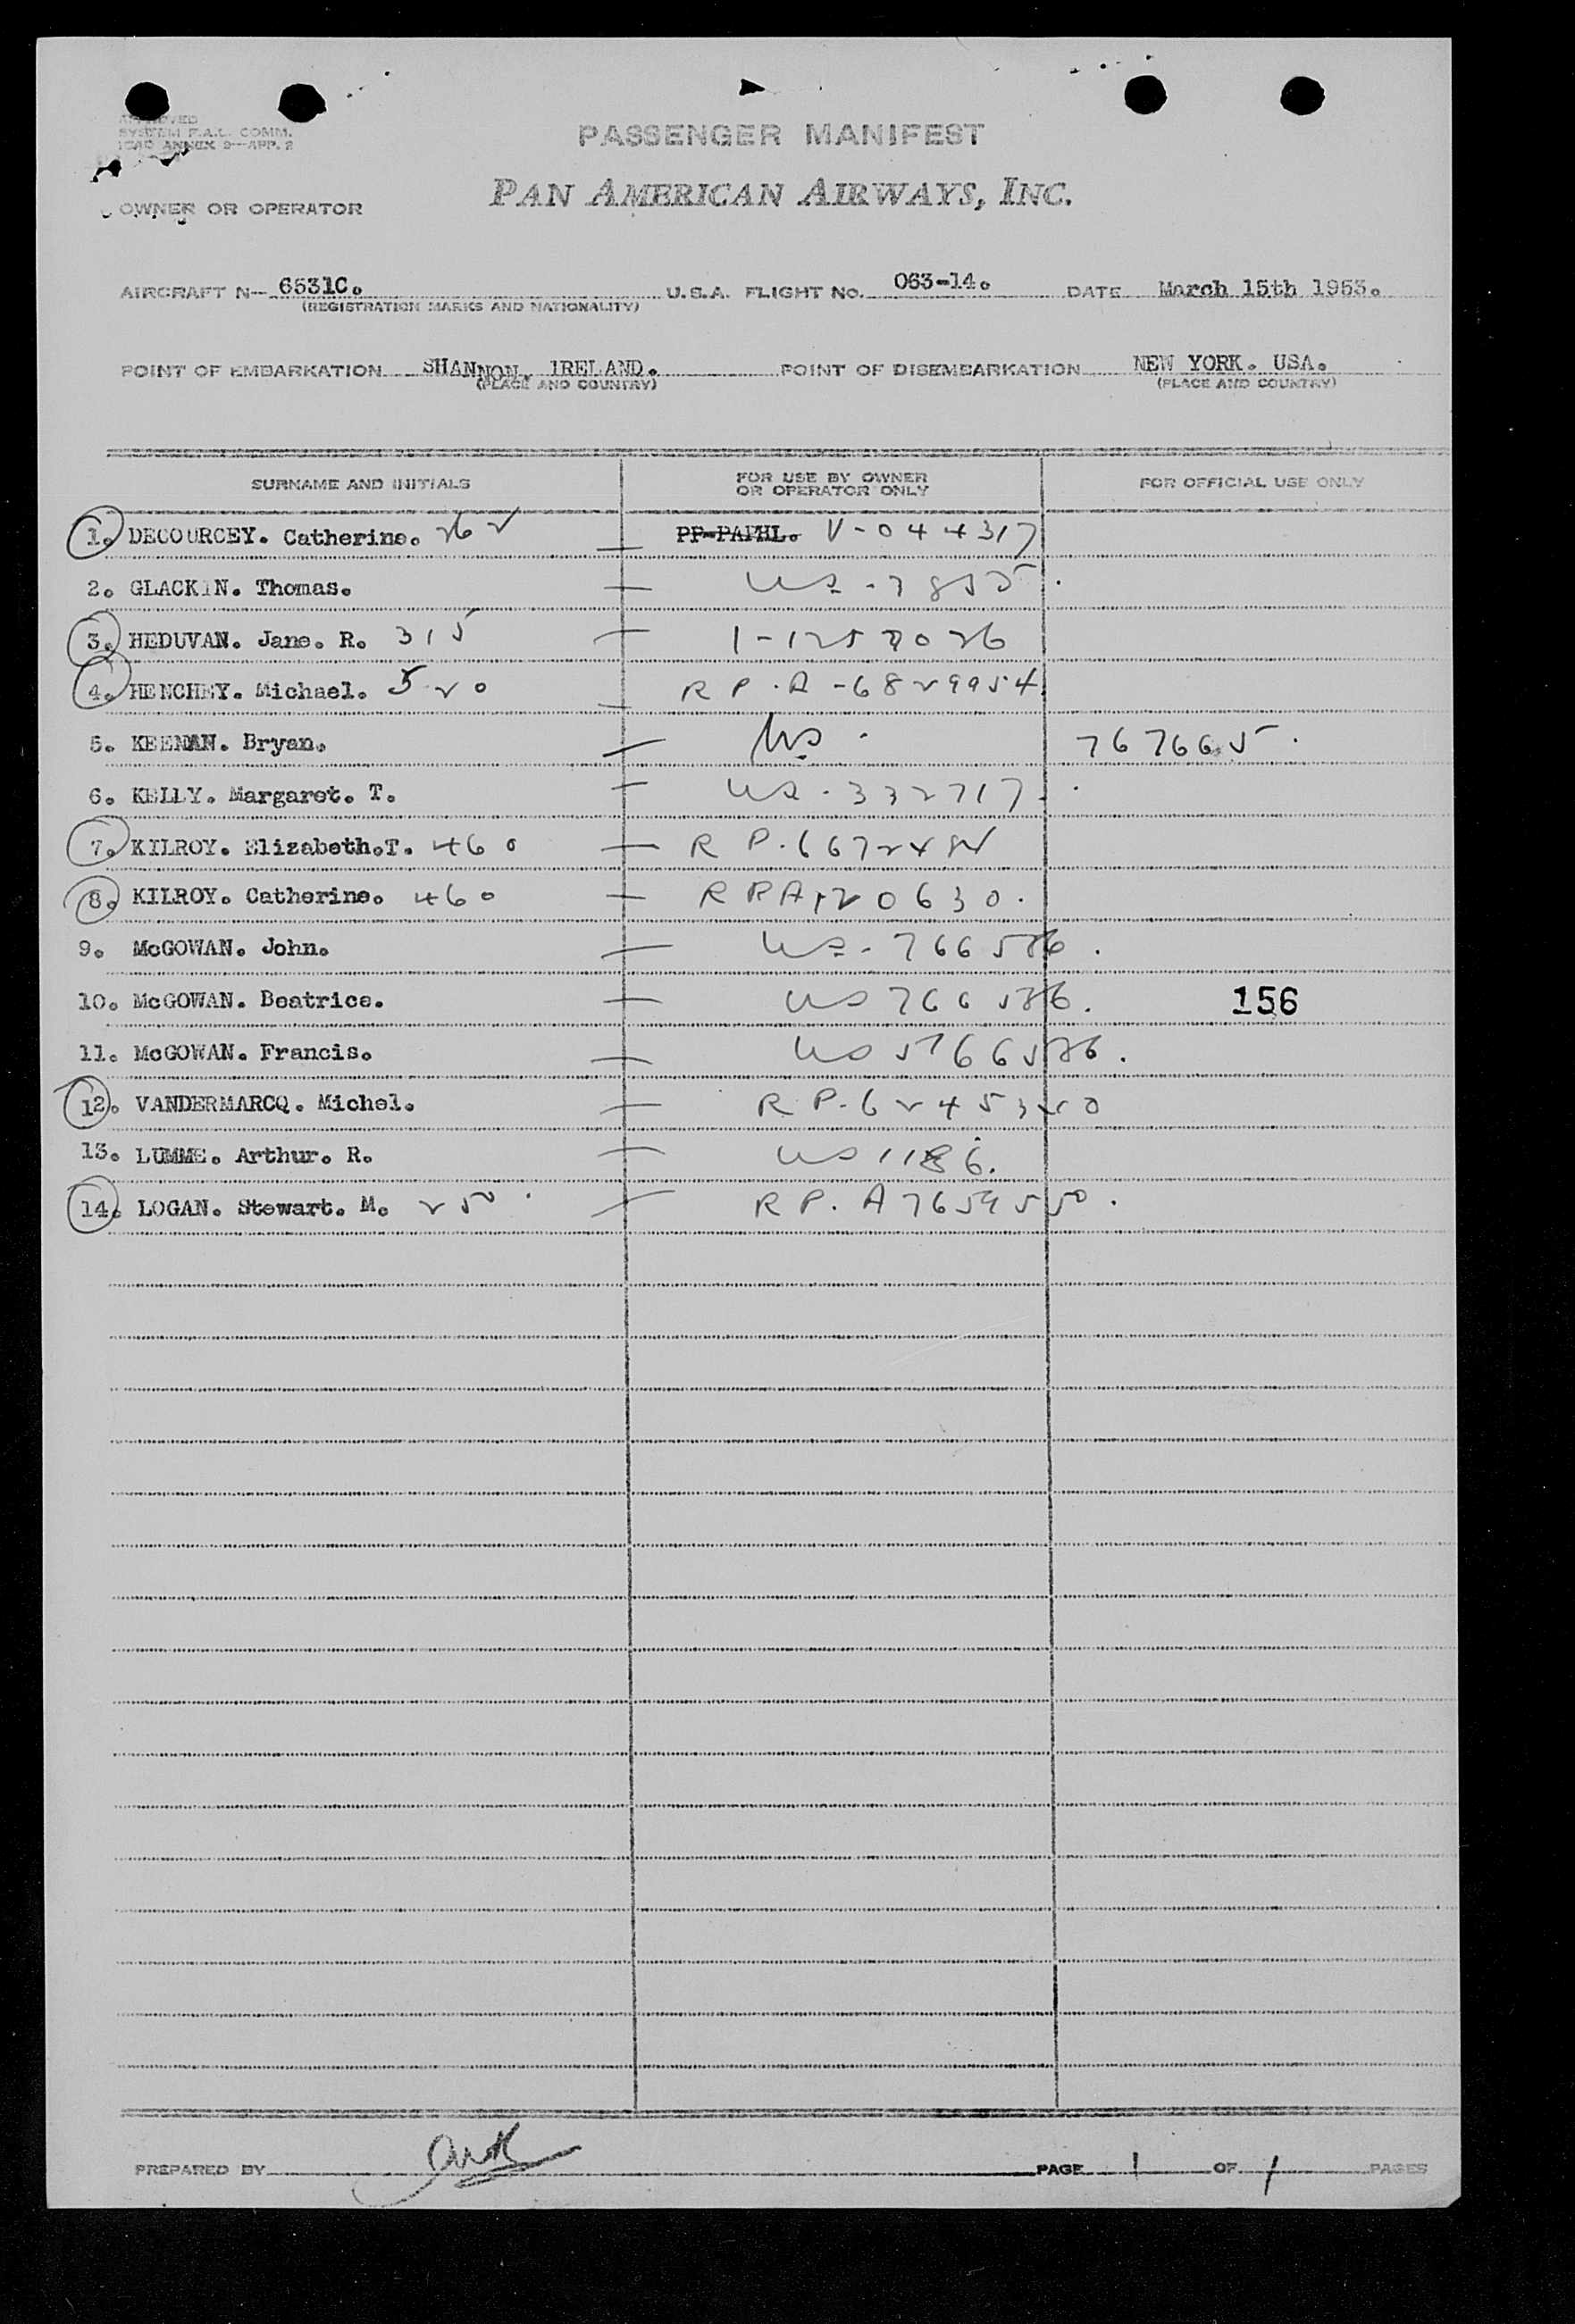 APPROVED
SYSTEM F.A.L. COMM.
ICAO ANNEX 9—APP. 2
PASSENGER MANIFEST
PAN AMERICAN AIRWAYS, INC.
OWNER OR OPERATOR
AIRCRAFT N— 6531C. U.S.A. FLIGHT NO. 063-14. DATE March 15th 1953.
(REGISTRATION MARKS AND NATIONALITY)
POINT OF EMBARKATION SHANNON. IRELAND. POINT OF DISEMBARKATION NEW YORK. USA.
(PLACE AND COUNTRY) (PLACE AND COUNTRY)
SURNAME AND INITIALS FOR USE BY OWNER OR OPERATOR ONLY FOR OFFICIAL USE ONLY
1. DECOURCEY. Catherine. 262 — PP-PAPHL. V-044317
2. GLACKIN. Thomas. — US-7855.
3. HEDUVAN. Jane. R. 315 — 1-1257026
4. HENCHEY. Michael. 520 — R P. A-6829954
5. KEENAN. Bryan. — US. 767665.
6. KELLY. Margaret. T. — US. 332717.
7. KILROY. Elizabeth.T. 460 — R P.
8. KILROY. Catherine. 460 — R P
9. McGOWAN. John. — US-766586.
10. McGOWAN. Beatrice. — US 766586. 156
11. McGOWAN. Francis. — US
12. VANDERMARCQ. Michel. — R P.
13. LUMME. Arthur. R. — US 1186.
14. LOGAN. Stewart. M. 250. — R P. A7659550.
PREPARED BY PAGE 1 OF 1 PAGES